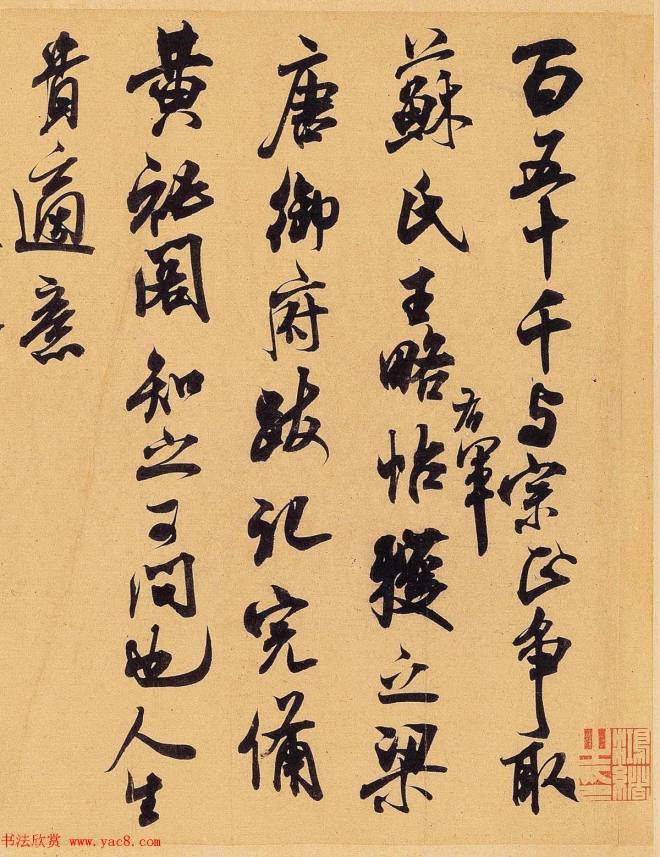 百五十千与宗正争取
右軍
蘇氏王略帖獲之梁
唐御府跋記完備
黃祕閣知之可問也人生
貴適意
书法欣赏 www.yac8.com